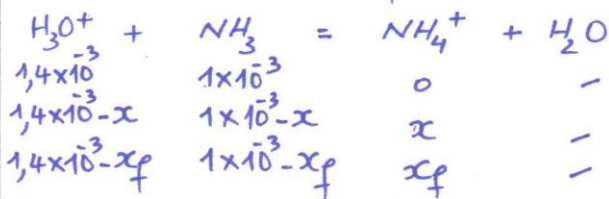 H₃O⁺ + NH₃ = NH₄⁺ + H₂O
1,4×10⁻³ 1×10⁻³ 0 –
1,4×10⁻³-x 1×10⁻³-x x –
1,4×10⁻³-xf 1×10⁻³-xf xf –